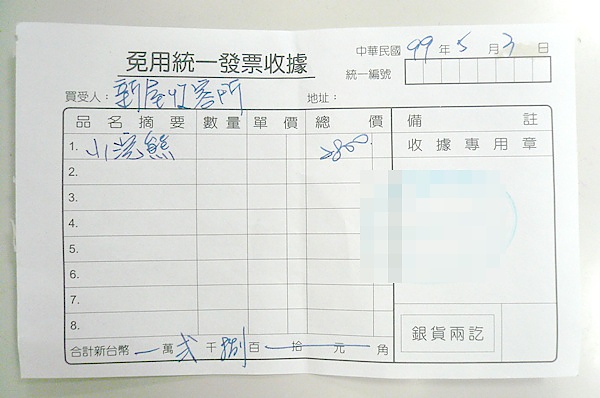 免用統一發票收據
中華民國 99 年 5 月 3 日
統一編號
買受人：新屋收容所 地址：
品名摘要 數量 單價 總價 備註
1. 小浣熊 2800 收據專用章
2.
3.
4.
5.
6.
7.
8.
銀貨兩訖
合計新台幣 萬 貳 千 捌 百 拾 元 角